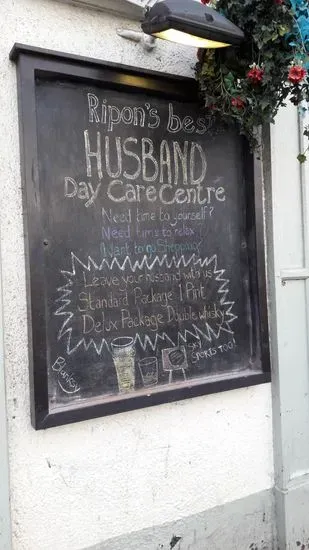 Ripon's best
HUSBAND
Day Care Centre
Need time to yourself?
Need time to relax?
Want to go Shopping?
Leave your husband with us
Standard Package 1 Pint
Delux Package Double whisky
SKY
SPORTS TOO!